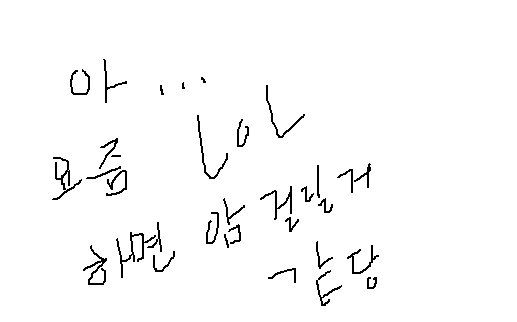 아...
요즘 LOL
하면 암 걸릴거
같당